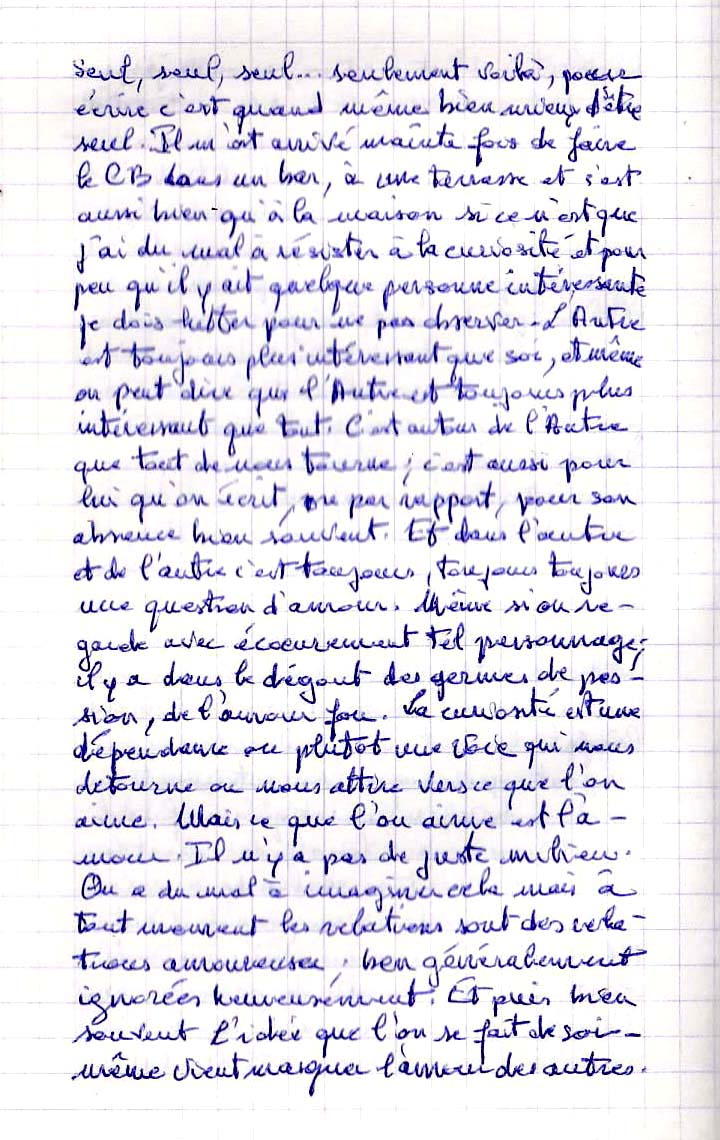 seul, seul, seul... seulement voilà, pour
écrire c'est quand même bien mieux d'être
seul. Il m'est arrivé mainte fois de faire
le CB dans un bar, à une terrasse et s'est
aussi bien qu'à la maison si ce n'est que
j'ai du mal à résister à la curiosité et pour
peu qu'il y ait quelque personne intéressante
je dois lutter pour ne pas observer. L'Autre
est toujours plus intéressant que soi, et même
on peut dire que l'Autre est toujours plus
intéressant que tout. C'est autour de l'Autre
que tout de nous tourne ; c'est aussi pour
lui qu'on écrit, par rapport, pour son
absence bien souvent. Et dans l'autre
et de l'autre c'est toujours, toujours toujours
une question d'amour. Même si on re-
garde avec écoeurement tel personnage ;
il y a dans le dégout des germes de pas-
sion, de l'amour fou. La curiosité est une
dépendance ou plutôt une voie qui nous
détourne ou nous attire vers ce que l'on
aime. Mais ce que l'on aime est l'a-
mour. Il n'y a pas de juste milieu.
On a du mal à imaginer cela mais à
tout moment les relations sont des rela-
tions amoureuses ; bien généralement
ignorées heureusement. Et puis bien
souvent l'idée que l'on se fait de soi-
même vient masquer l'amour des autres.